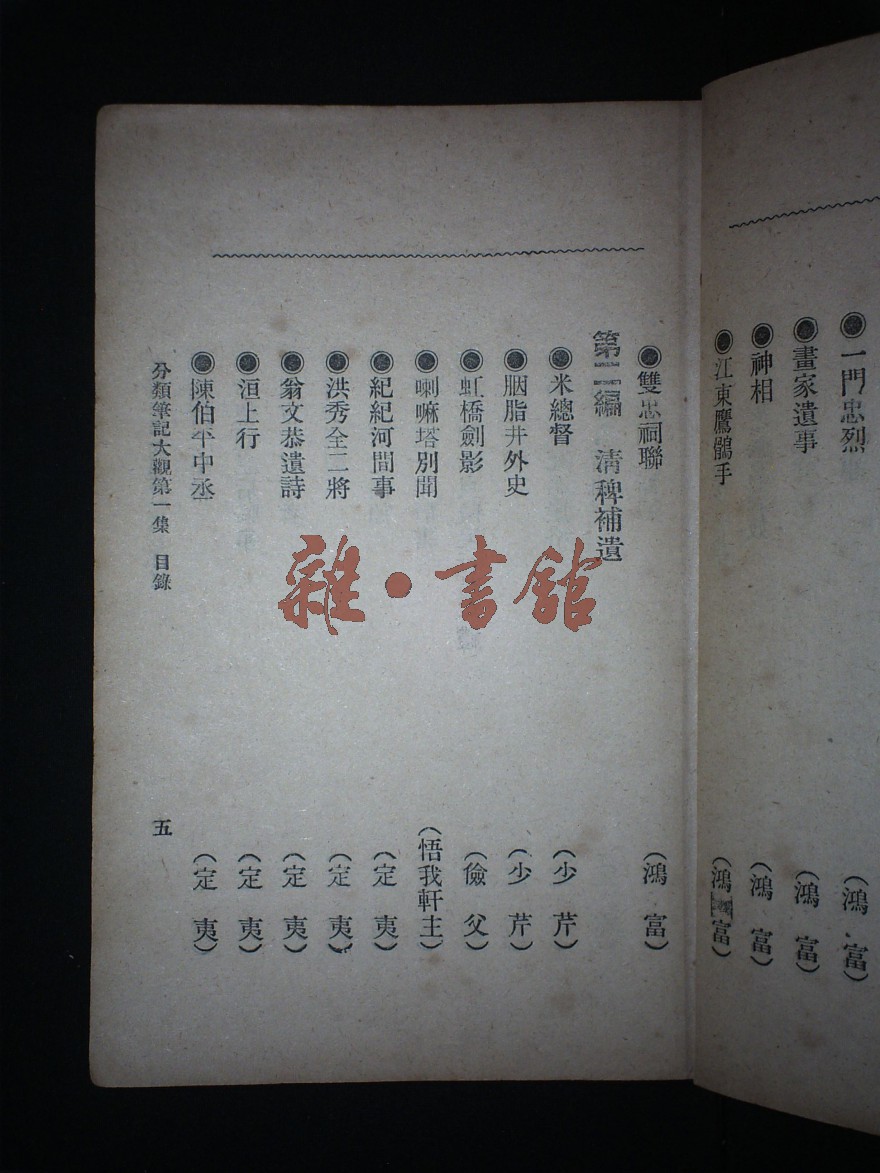 ●一門忠烈 (鴻富)
●畫家遺事 (鴻富)
●神相 (鴻富)
●江東鷹鶻手 (鴻富)
●雙忠祠聯 (鴻富)
第二編 清稗補遺
●米總督 (少芹)
●胭脂井外史 (少芹)
●虹橋劍影 (儉父)
●喇嘛塔別聞 (悟我軒主)
●紀紀河間事 (定夷)
●洪秀全二將 (定夷)
●翁文恭遺詩 (定夷)
●洹上行 (定夷)
●陳伯平中丞 (定夷)
分類筆記大觀第一集 目錄 五
雜·書館